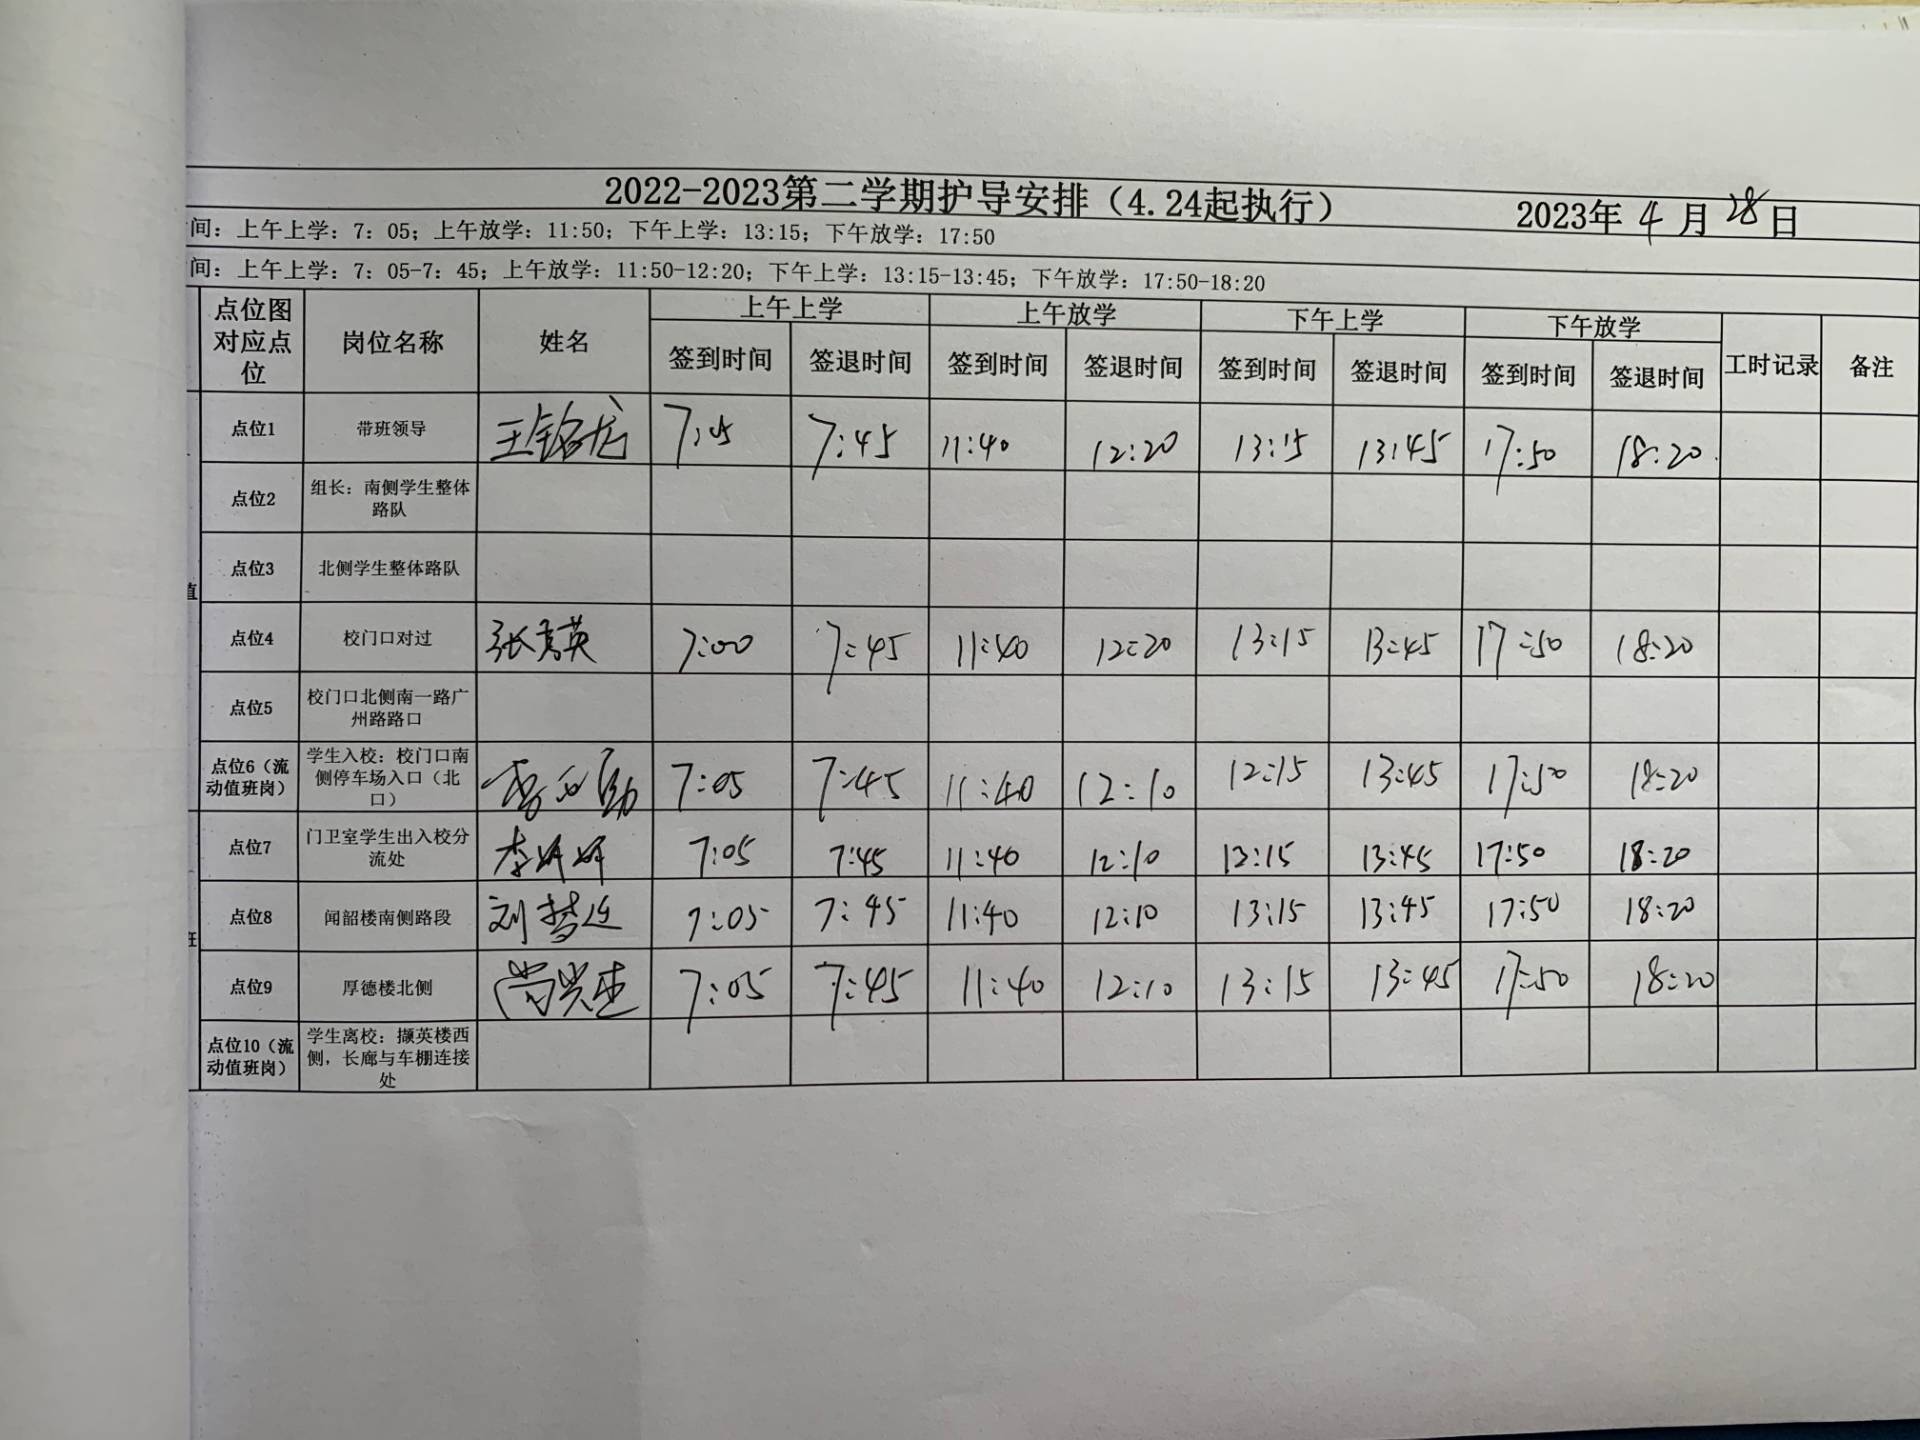 2022-2023第二学期护导安排（4.24起执行） 2023年 4 月 28 日
间：上午上学：7：05；上午放学：11:50；下午上学：13:15；下午放学：17:50
间：上午上学：7：05-7：45；上午放学：11:50-12:20；下午上学：13:15-13:45；下午放学：17:50-18:20
点位图对应点位 岗位名称 姓名 上午上学 上午放学 下午上学 下午放学 工时记录 备注
签到时间 签退时间 签到时间 签退时间 签到时间 签退时间 签到时间 签退时间
点位1 带班领导 王铭龙 7:05 7:45 11:40 12:20 13:15 13:45 17:50 18:20
点位2 组长：南侧学生整体路队
点位3 北侧学生整体路队
值
点位4 校门口对过 张秀英 7:00 7:45 11:40 12:20 13:15 13:45 17:50 18:20
点位5 校门口北侧南一路广州路路口
点位6（流动值班岗） 学生入校：校门口南侧停车场入口（北口） 7:05 7:45 11:40 12:10 12:15 13:45 17:50 18:20
点位7 门卫室学生出入校分流处 李妍妍 7:05 7:45 11:40 12:10 13:15 13:45 17:50 18:20
点位8 闻韶楼南侧路段 刘梦迪 7:05 7:45 11:40 12:10 13:15 13:45 17:50 18:20
班
点位9 厚德楼北侧 7:05 7:45 11:40 12:10 13:15 13:45 17:50 18:20
点位10（流动值班岗） 学生离校：撷英楼西侧，长廊与车棚连接处